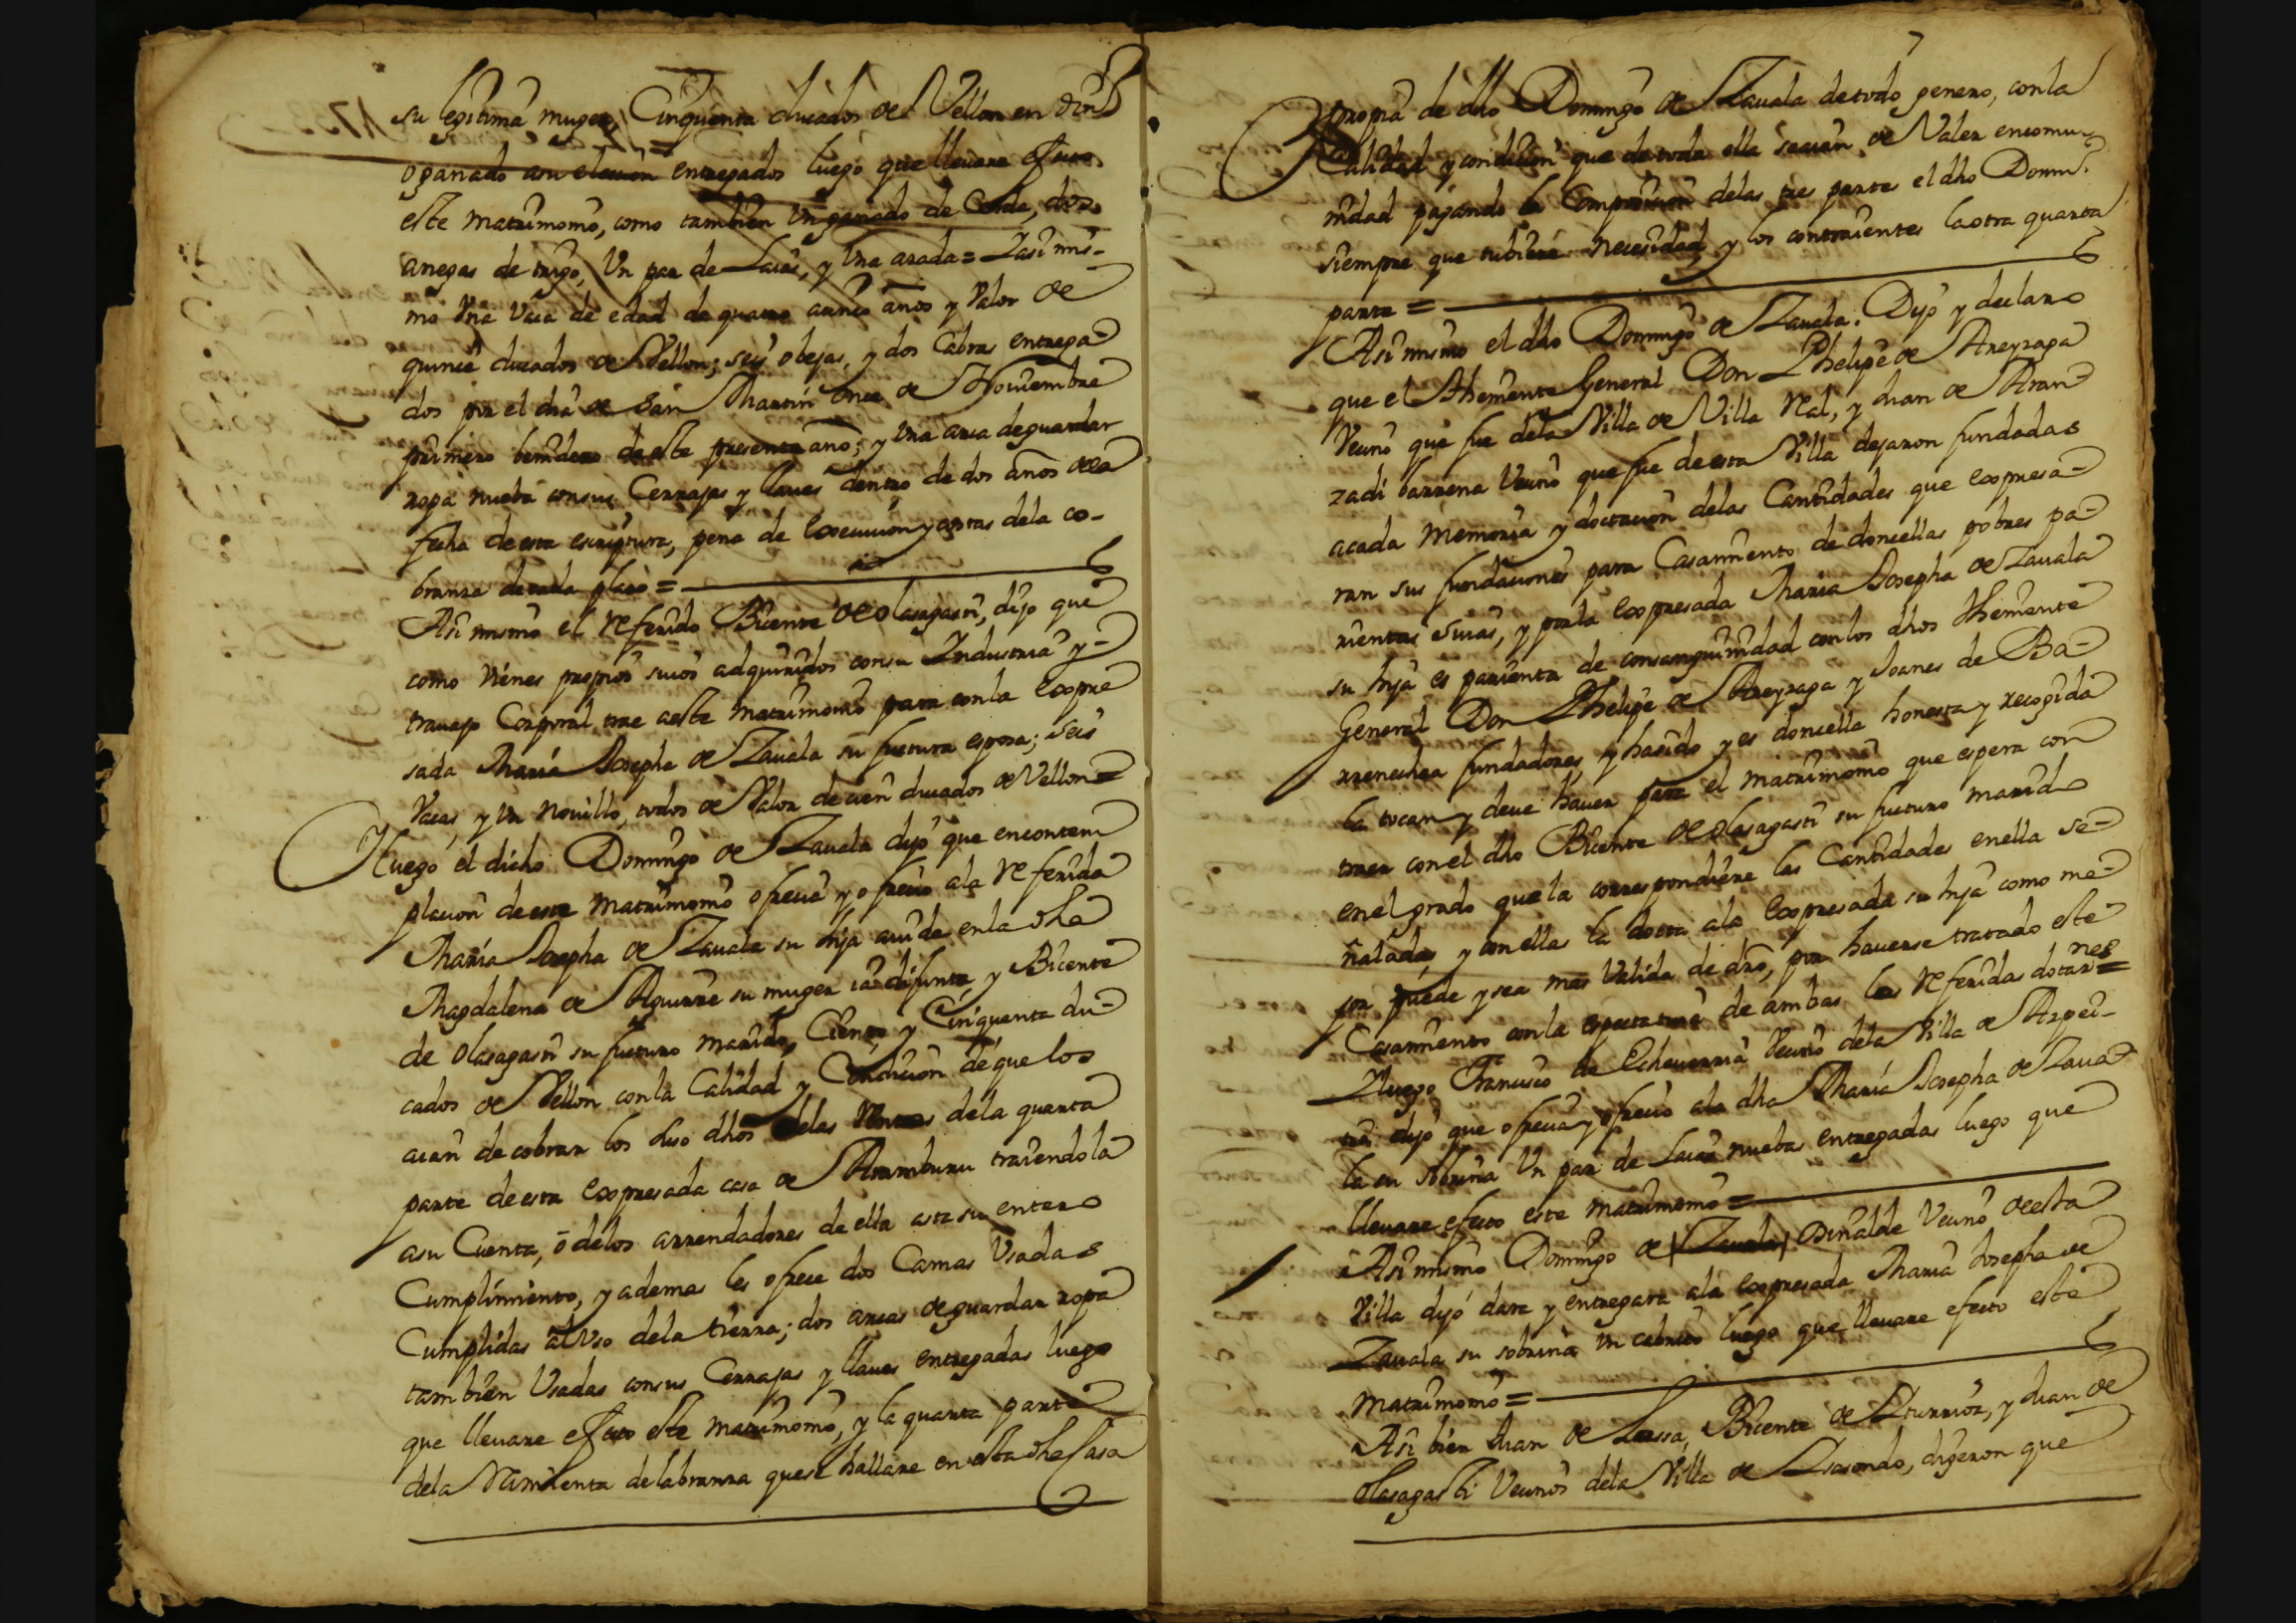 su legitima muger, Cinquenta ducados de Vellon en din.º
o ganado asu elecion entregados luego que lleuare efecto
este matrimonio, como tambien Un ganado de Cerda, dos
anegas de trigo, Un par de Laias, y Una azada = Iasi mis-
mo Una Vaca de edad de quatro acinco años y Valor de
quince ducados de Vellon; seis obejas, y dos Cabras entrega-
dos por el dia de San Martin once de Noviembre
primero benidero de este presente año; y Una arca de guardar
ropa nueba consus Cerrajas y llaues dentro de dos años dela
fecha de esta escriptura, pena de execucion y costas dela co-
branza de cada plazo =
Asi mismo el referido Bicente de olasagasti, dijo que
como vienes propios suios adquiridos consu Industria y
trauajo Corporal trae aeste matrimonio para con la expre
sada Maria Josepha de Zauala su futura esposa; seis
Vacas, y Un Nouillo, todos de Valor de cien ducados de Vellon =
Iluego el dicho Domingo de Zauala dijo que encontem
placion de este matrimonio ofrecia y ofrecio ala referida
Maria Josepha de Zauala su hija auida enla dha
Magdalena de Aguirre su muger ia difunta, y Bicente
de Olasagasti su futuro marido, Ciento y Cinquenta du-
cados de Vellon con la Calidad y Condicion de que los
aian de cobrar los suso dhos delas Rentas dela quarta
parte de esta expresada casa de Aramburu traiendola
asu Cuenta, ó delos arrendadores de ella asta su entero
Cumplimiento, y ademas les ofrece dos Camas Usadas
Cumplidas al Uso dela tierra; dos arcas de guardar ropa
tambien Usadas consus Cerrajas y llaues entregadas luego
que lleuare efecto este matrimonio, y la quarta parte
dela erramienta delabranza que se hallare en esta dha Casa
propia de dho Domingo de Zauala de todo genero, con la
Calidad y condicion que de toda ella se aian de Valer en comu-
nidad pagando la Composicion delas tres partes el dho Domi.º
siempre que tubiere necesidad, y los contraientes la otra quarta
parte =
Asi mismo el dho Domingo de Zauala. Dijo y declaro
que el theniente General Don Phelipe de Areyzaga
Vecino que fue dela Villa de Villa Real, y Juan de Aran
zadi barrena Vecino que fue de esta Villa dejaron fundadas
acada memoria y doctacion delas Cantidades que expresa-
ran sus fundaciones para Casamiento de doncellas pobres pa-
rientas suias, y porla expresada Maria Josepha de Zauala
su hija es parienta de consanguinidad con los dhos theniente
General Don Phelipe de Areyzaga y Joanes de Ba-
rrenechea fundadores, y hasido y es doncella honesta y recogida
la tocan y deue hauer para el matrimonio que espera con
traer con el dho Bicente de olasagasti su futuro marido
en el grado que la correspondiere las Cantidades en ella se-
ñaladas, y con ellas la docta ala expresada su hija como me-
jor puede y sea mas Valida de dro, por hauerse tratado este
Casamiento con la espectatiua de ambas las referidas dotacio nes =
Iluego Francisco de Echeuerria Vecino dela Villa de Azpei-
tia dijo que ofrecia y ofrecio ala dha Maria Josepha de Zaua
la su sobrina Un par de Laias nuebas entregadas luego que
lleuare efecto este matrimonio =
Asi mismo Domingo de Zauala, Osinalde Vecino de esta
Villa dijo dara y entregara ala expresada Maria Josepha de
Zauala su sobrina Un cabrito luego que lleuare efecto este
matrimonio =
Asi bien Juan de Lassa, Bicente de Iturrioz, y Juan de
Olasagasti Vecinos dela Villa de Isasondo, digeron que